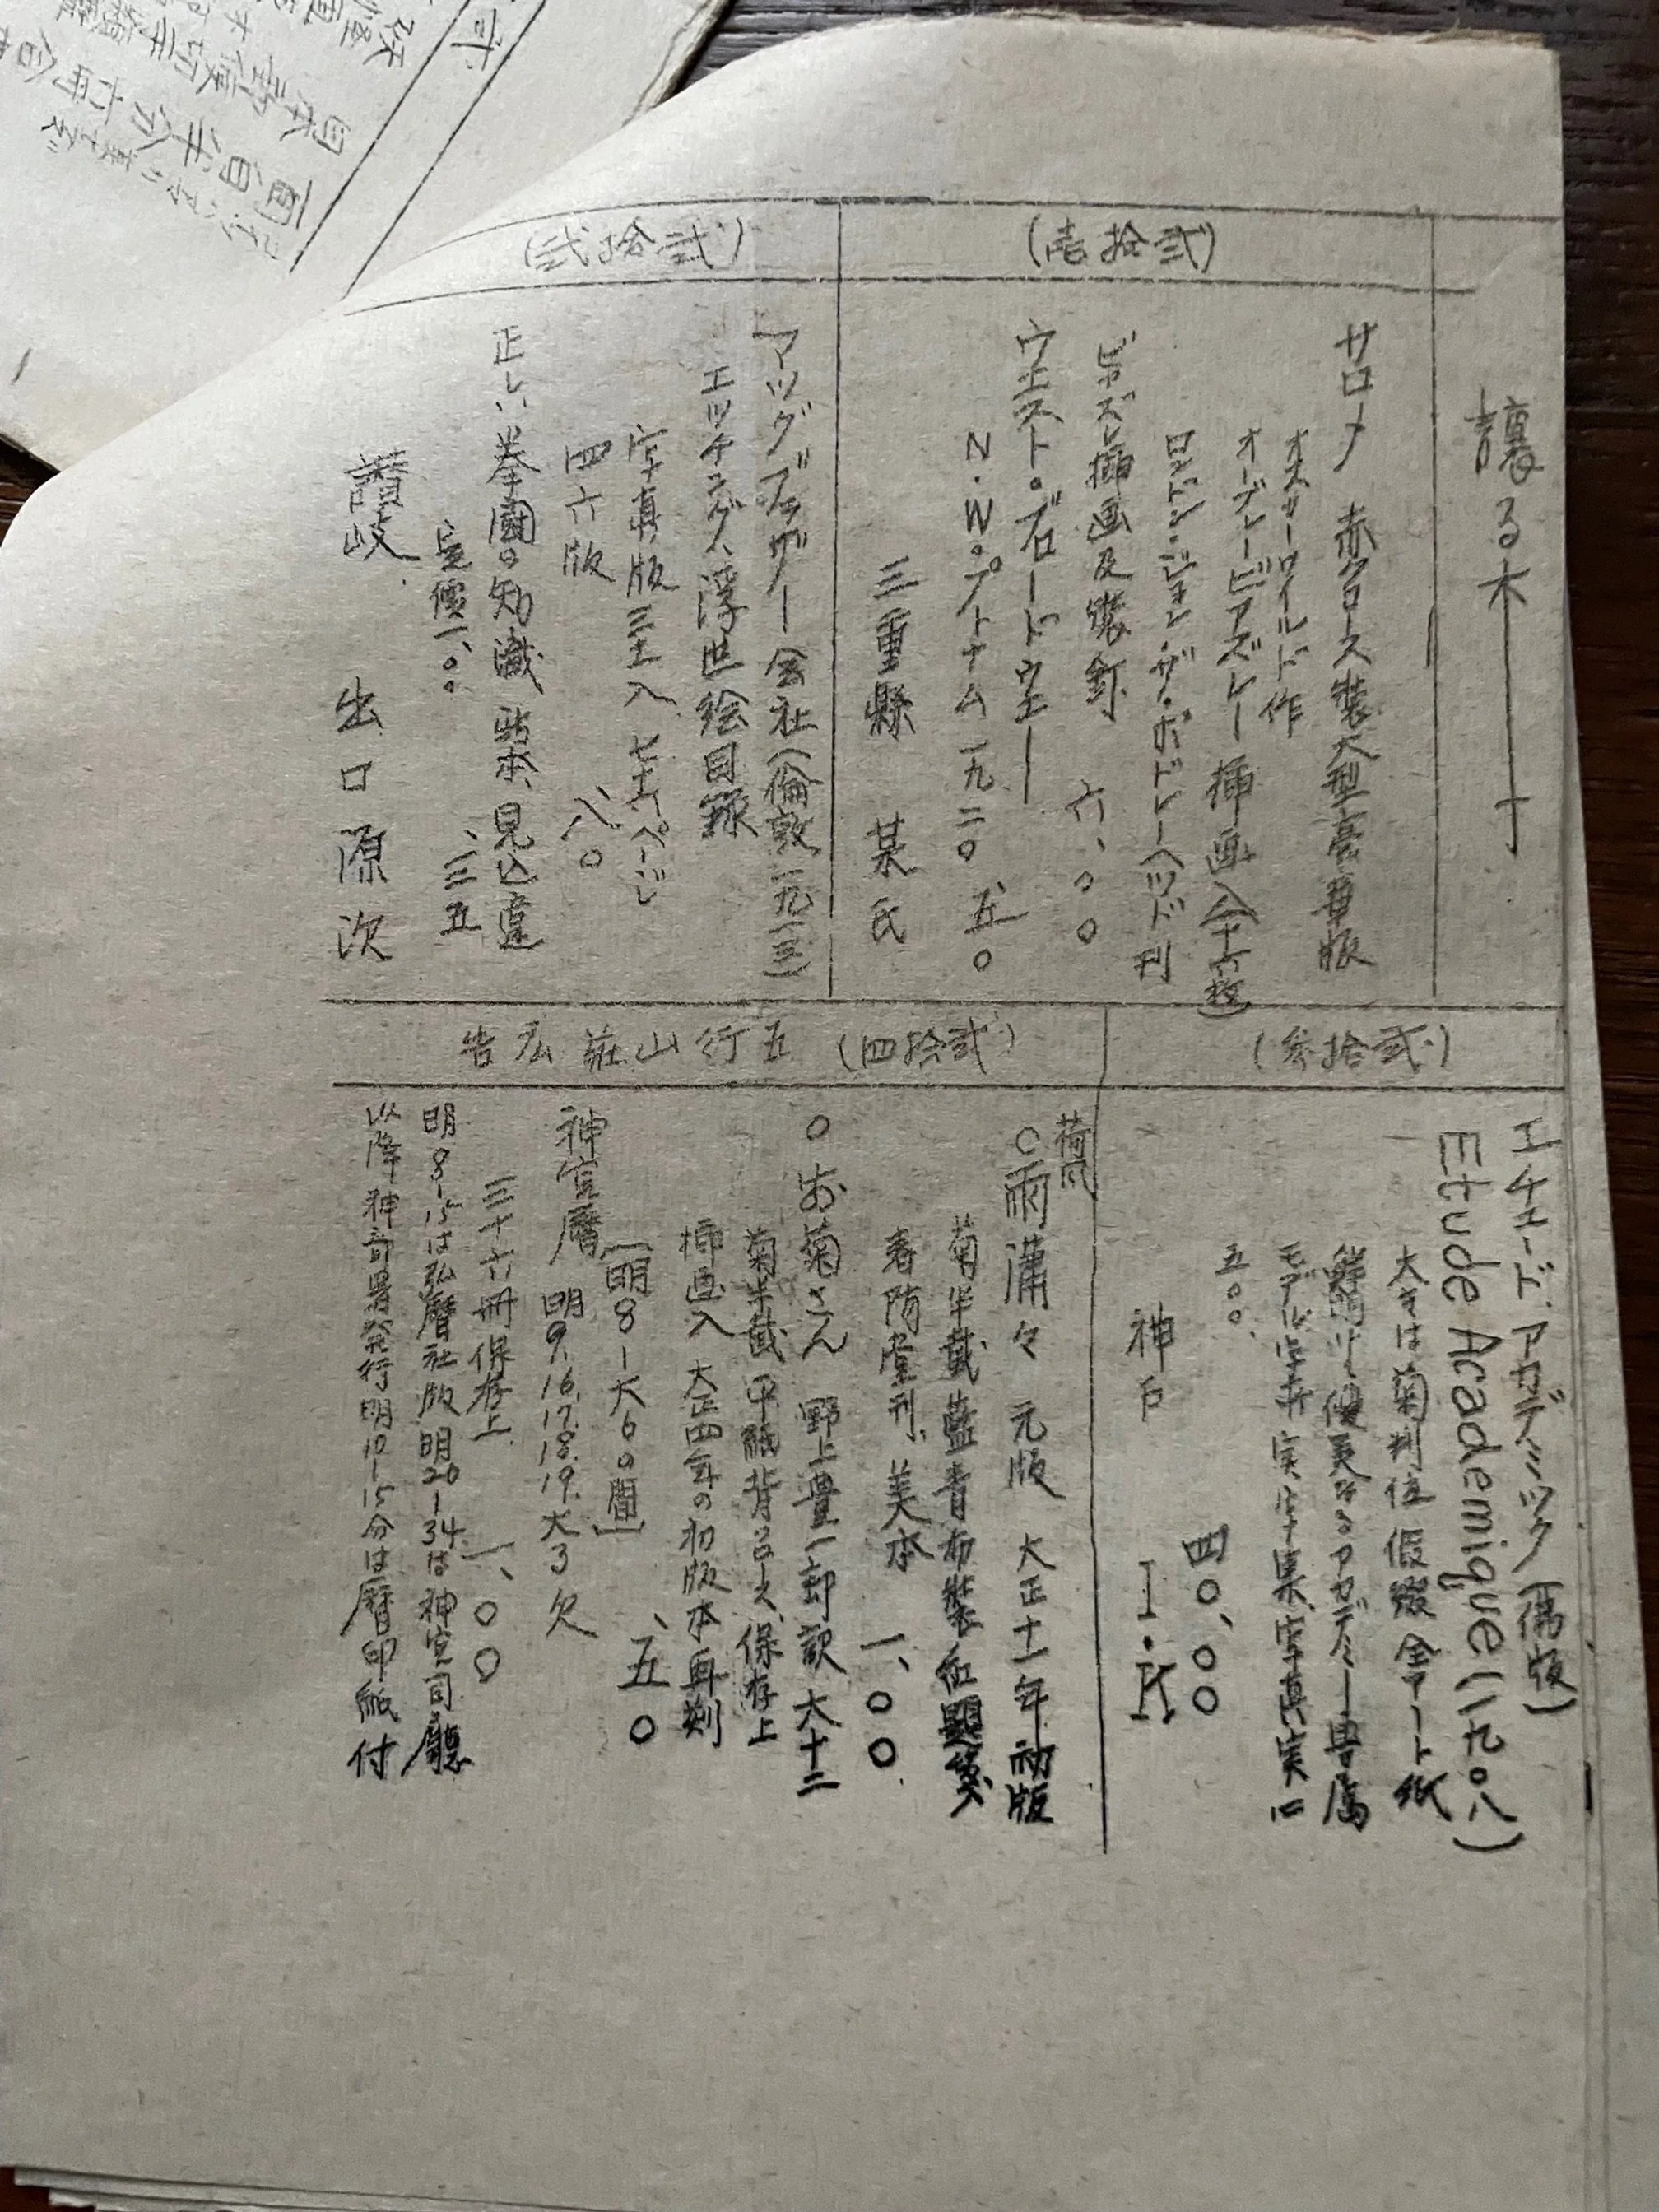 譲る本
(弐拾壱)
サロメ 赤クロース装大型豪華版
オスカーワイルド作
オーブレービアズレー挿画入(十六枚)
ロンドン・ジョン・ザ・ボドレーヘッド刊
ビアズレ挿画及装釘 六、〇〇
ウエスト・ブロードウエー
N.W.プトナム 一九二〇 、五〇
三重縣 某氏
(弐拾弐)
マッグブラザー会社(倫敦一九一三)
エッチング、浮世絵目録
写真版三十入 七十六ページ
四六版 、八〇
正しい拳闘の知識 新本、見込違
定價一、〇〇 、三五
讃岐 出口源次
(弐拾参)
エチュード、アカデミック(偶版)
Etude Academique(一九〇八)
大さは菊判位 假綴 全アート紙
鮮明にして優美なるアカデミー専属
モデル写真 実写集、写真実に
五〇〇、
四〇、〇〇
神戸 I.K
(弐拾四) 五行山荘広告
荷風
〇雨瀟々 元版 大正十一年初版
菊半截 藍青布装 紅題箋
春陽堂刊、美本 一、〇〇
〇お菊さん 野上豊一郎訳 大十二
菊半截 甲紙背クロース、保存上
挿画入 大正四年の初版本再刻
、五〇
神宮暦 [明8-大6の間]
明9.16.17.18.19.大3欠
三十六冊保存上 一、〇〇
明8-15は弘暦社版 明20-34は神宮司廳
以降神部署発行 明10-15分は暦印紙付